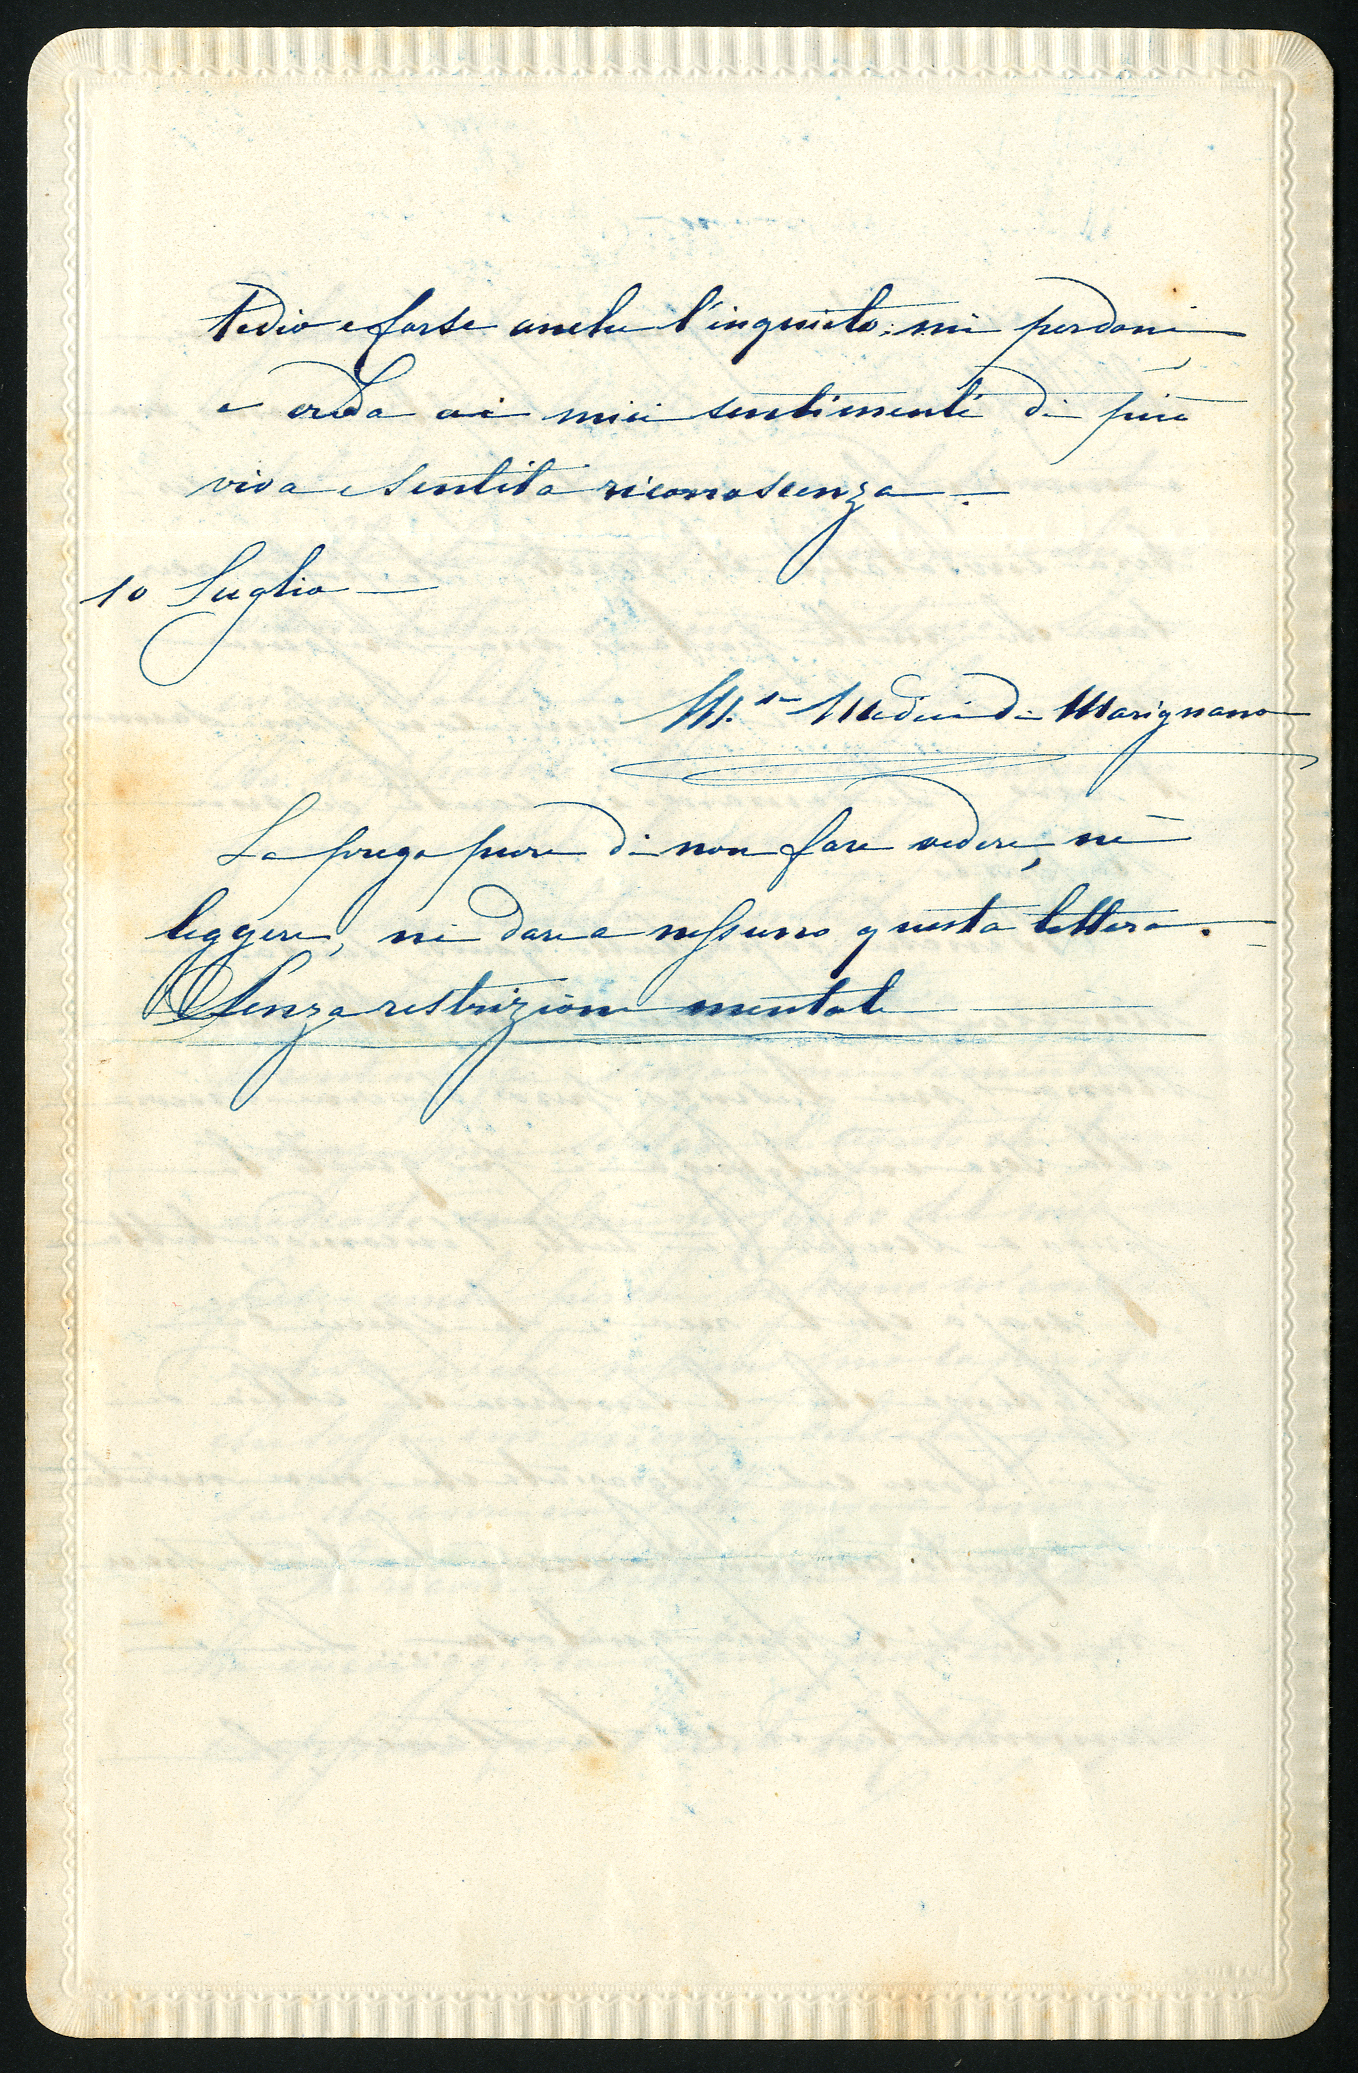 tedio e forse anche l'inquieto; mi perdoni
e creda ai miei sentimenti di più
viva e sentita riconoscenza.
10 Luglio
M.sa Medici di Marignano
La prego pure di non fare vedere, nè
leggere, nè dare a nessuno questa lettera.
Senza restrizione mentale